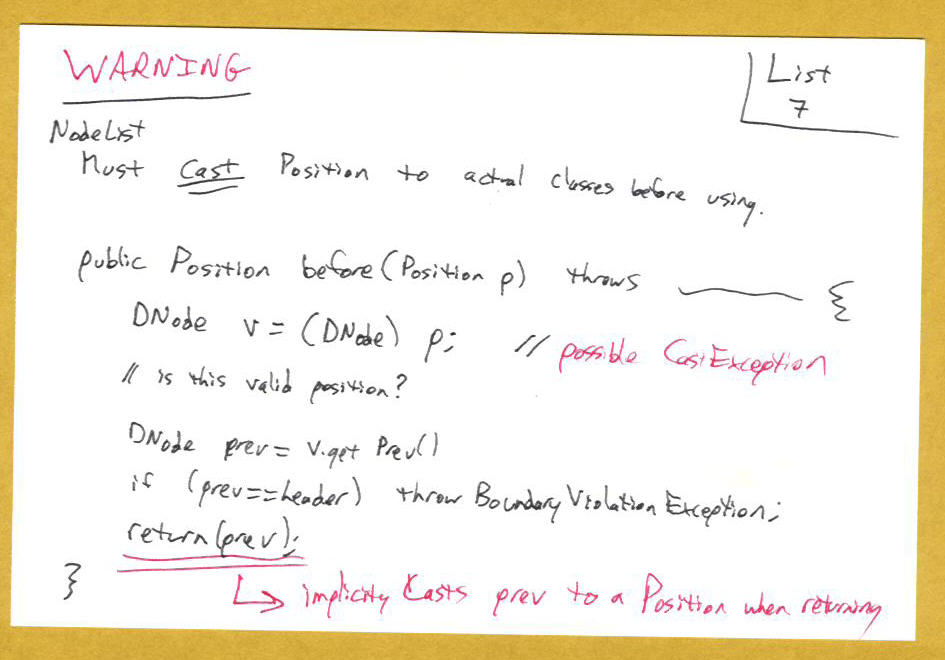 WARNING
List
7
NodeList
Must Cast Position to actual classes before using.
public Position before(Position p) throws {
DNode v = (DNode) p; // possible CastException
// is this valid position?
DNode prev = v.get Prev()
if (prev==header) throw BoundaryViolationException;
return(prev);
}
↳ implicity Casts prev to a Position when returning